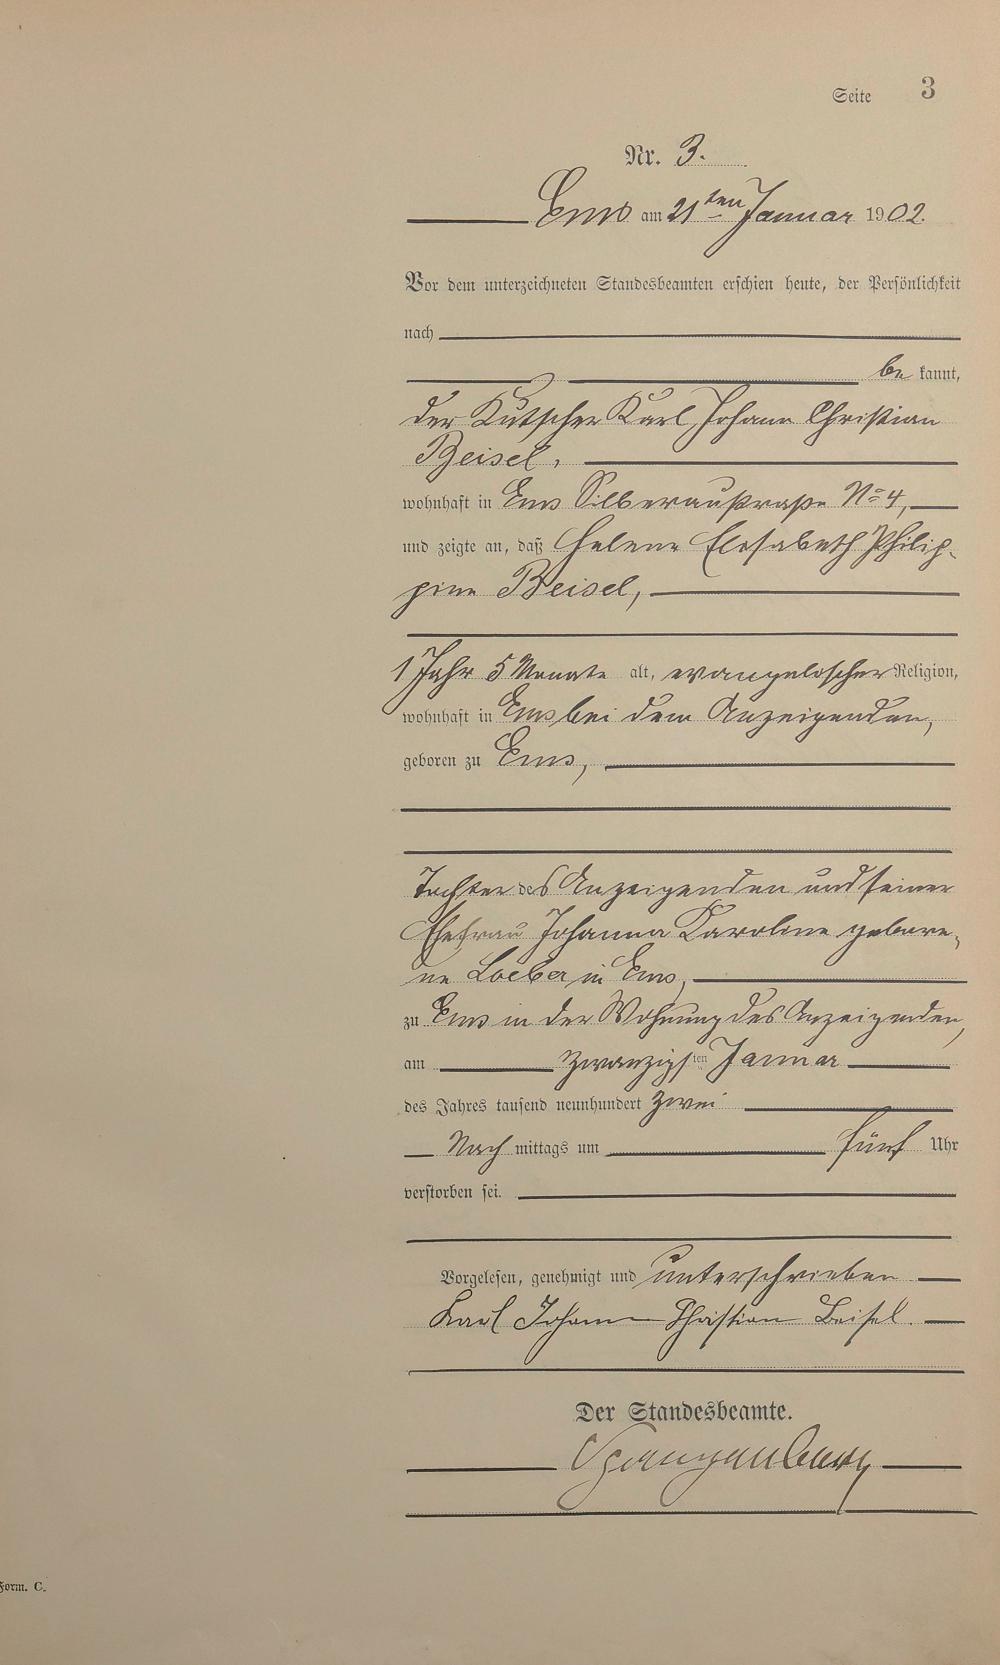 Seite 3
Nr. 3.
Ems am 21ten Januar 1902.
Vor dem unterzeichneten Standesbeamten erschien heute, der Persönlichkeit
nach
be kannt,
der Kutscher Karl Johann Christian
Beisel,
wohnhaft in Ems Silberaustraße No 4,
und zeigte an, daß Helene Elisabeth Philip-
pine Beisel,
1 Jahr 5 Monate alt, evangelischer Religion,
wohnhaft in Ems bei dem Anzeigenden,
geboren zu Ems,
Tochter des Anzeigenden und seiner
Ehefrau Johanna Karoline gebore-
ne Loeber in Ems,
zu Ems in der Wohnung des Anzeigenden,
am zwanzigsten Januar
des Jahres tausend neunhundert zwei
Nach mittags um fünf Uhr
verstorben sei.
Vorgelesen, genehmigt und unterschrieben
Karl Johann Christian Beisel.
Der Standesbeamte.
Spangenberg
Form. C.